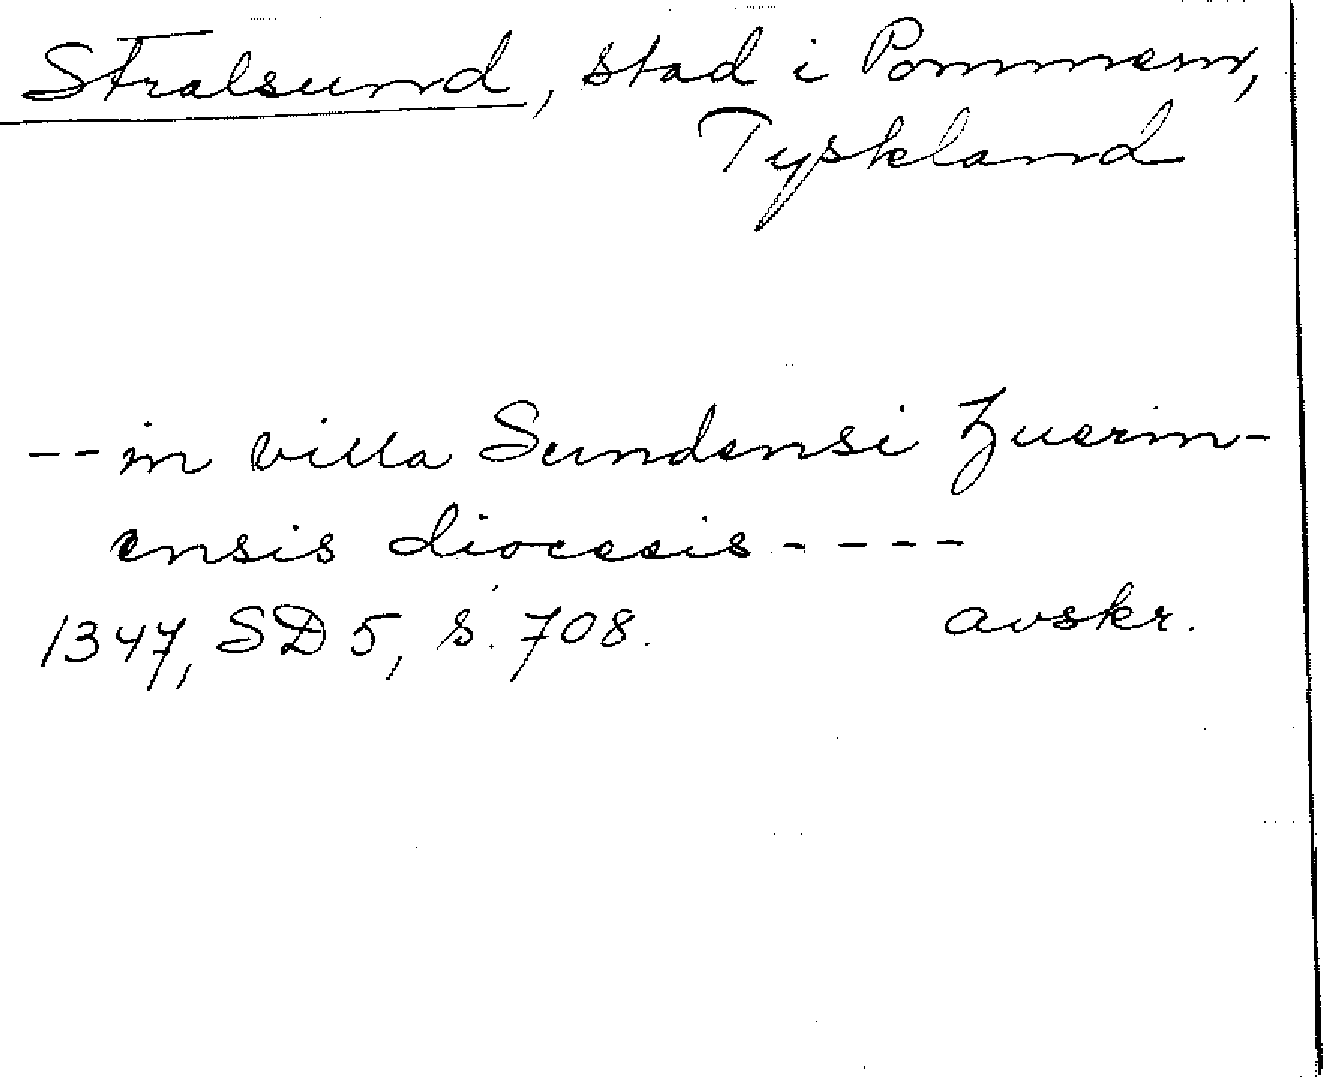 Stralsund, stad i Pommern,
Tyskland
-- in villa Sundensi Zuerin-
ensis diocesis ----
1347, SD 5, s. 708. avskr.